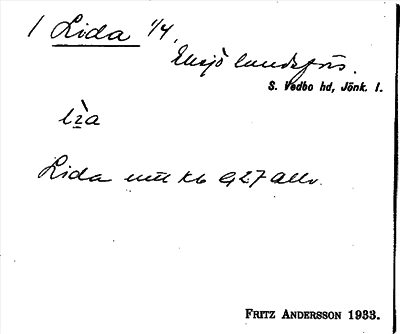 1 Lida 1/4.
Eksjö landsförs.
S. Vedbo hd, Jönk. l.
Lida utt kb G27 allv.
FRITZ ANDERSSON 1933.